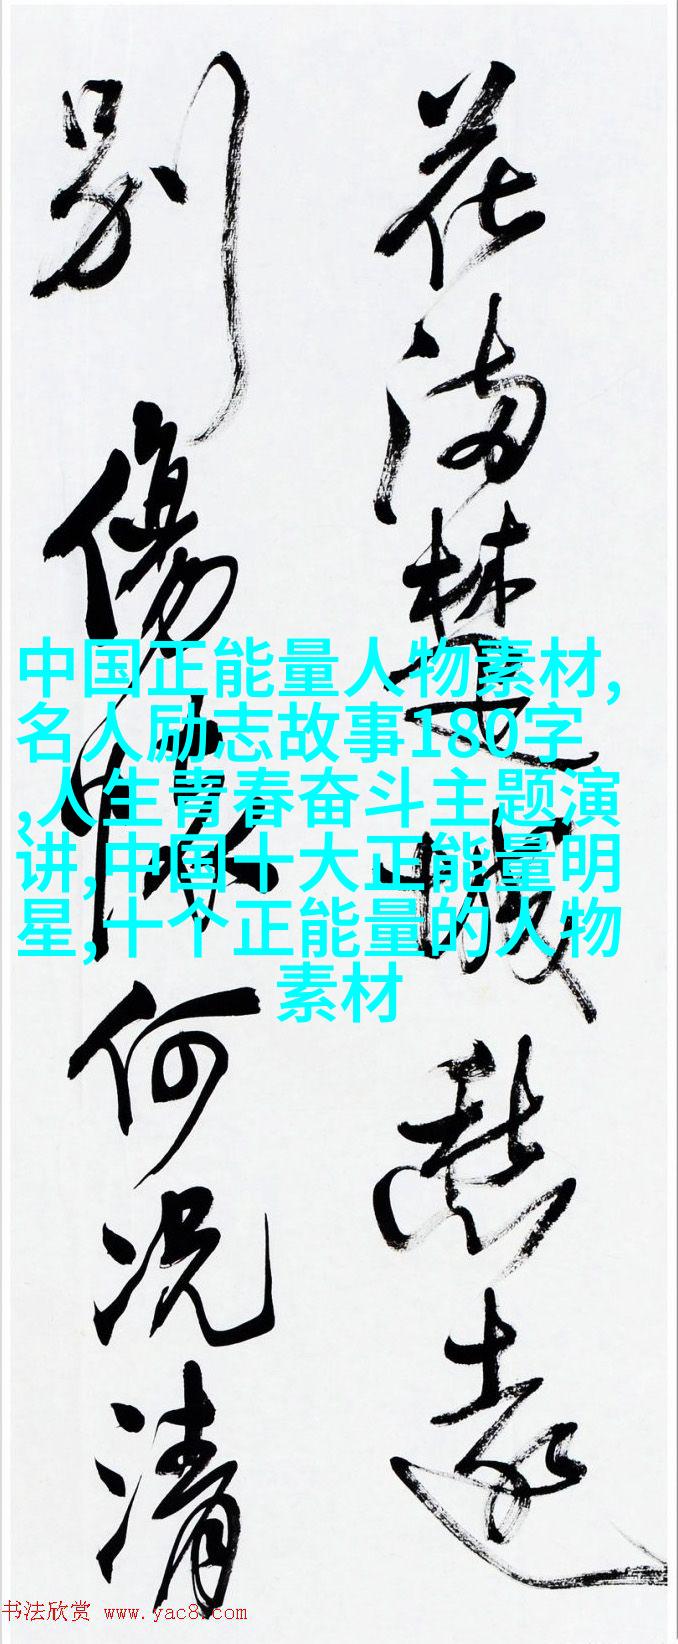 花滿楚城愁遠
别傷懷何况清
中国正能量人物素材,
名人励志故事180字
,人生青春奋斗主题演
讲,中国十大正能量明
星,十个正能量的人物
素材
书法欣赏 www.yac8.com